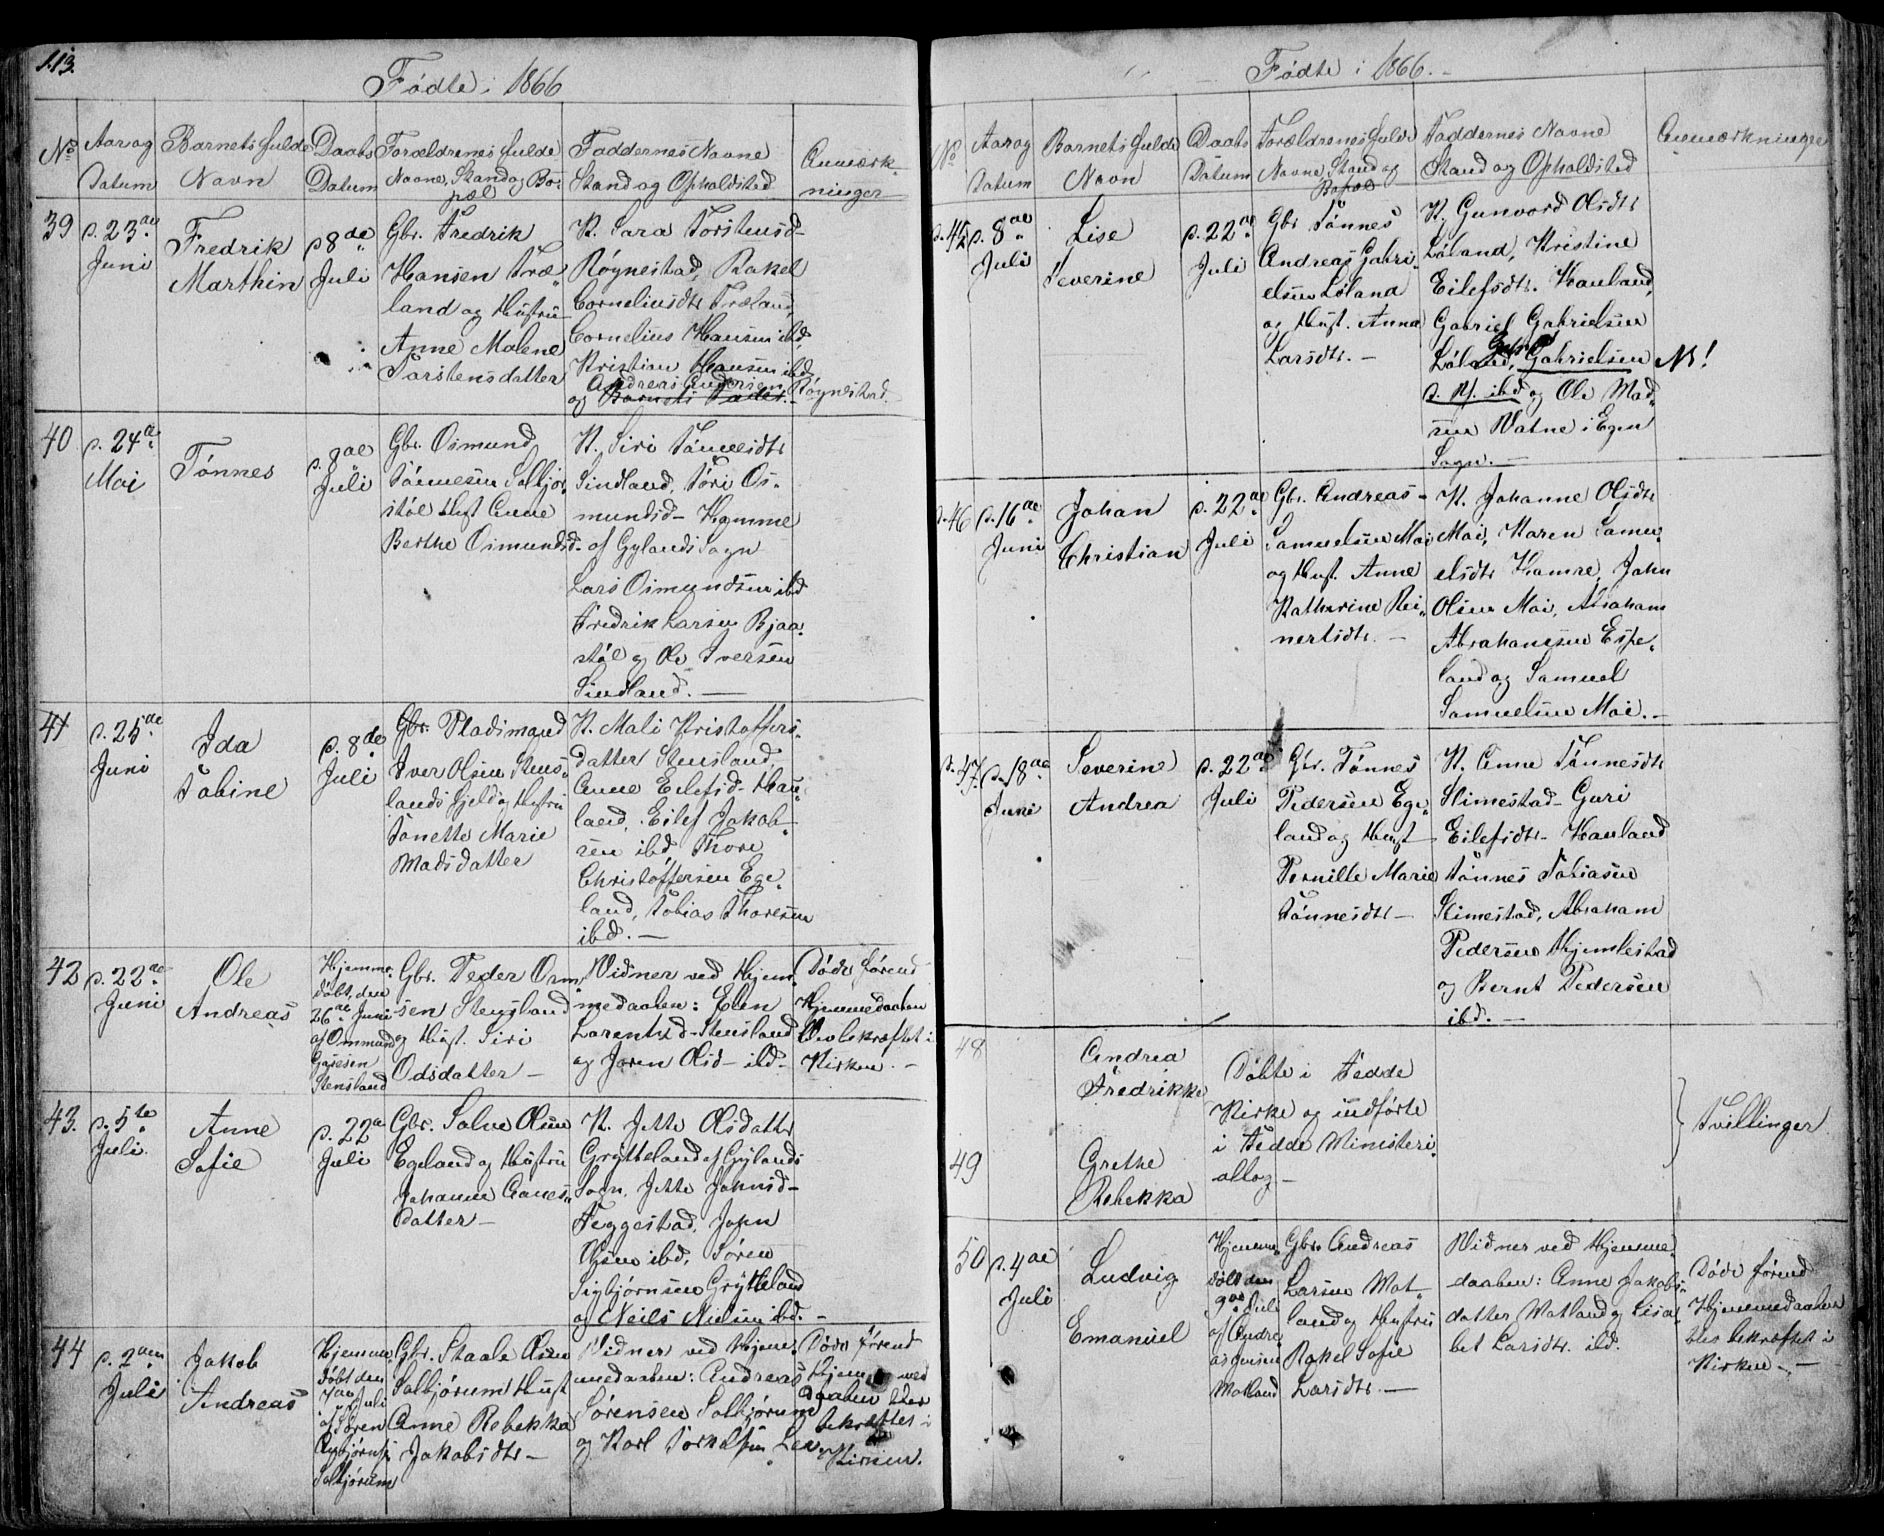 113.
Fødte i 1866
No
Aar og Datum
Barnets fulde Navn
Daabs Datum
Forældrenes fulde Navne, Stand og Bopæl
Faddernes Navne Stand og Opholdsted
Anmærkninger
39
d. 23de Juni
Fredrik Marthin
d 8de Juli
Gbr. Fredrik
Hansen Træ
land og Hustru
Anne Malene
Torstensdatter
K. Sara Torstensd
Røynestad, Rakel
Corneliusdtr Træland,
Cornelius Hansen ibd
Kristian Hansen ibd
Andreas Andersen Røynestad
og Barnets Fader.
40
d. 24de Mai
Tønnes
d. 8de Juli
Gbr. Osmund
Tønnesen Solbjør
støl Hust Anne
Berthe Osmundsd
K. Siri Tønnesdtr
Sindland, Tori Os-
mundsd- Hamme
af Gylands Sogn
Lars Osmundsen ibd
Fredrik Larsen Bjaa-
støl og Ole Iversen
Sindland.
41
d. 25de Juni
Ida Tobine
d. 8de Juli
Gbr. Pladsmand
Iver Olsen Stens
lands Fjeld og Hustru
Tonette Marie
Madsdatter
K. Mali Kristoffers-
datter Stensland,
Anne Eilefsd- Hau-
land, Eilef Jakob-
sen ibd Thore
Christoffersen Ege-
land, Tobias Thoresen
ibd. -
42
d. 22de Juni
Ole Andreas
Hjemme-
døbt, den
26de Juni
af Ommund
Stensland
Gbr. Peder Orm-
sen Stensland
og Hust. Siri
Odsdatter -
Vidner ved Hjem-
medaaben: Elen
Larentsd- Stensland
og Joren Olsd- ibd-
Døde førend
Hjemmedaaben
blev bekræftet i
Kirken. -
43.
d. 5te Juli.
Anne Sofie
d. 22de Juli
Gbr. Salve Olsen
Egeland og Hustru
Johanne Aanes-
datter -
K. Jette Olsdatter
Grytteland af Gylands
Sogn. Jette Johnsd-
Feggestad, John
Olsen ibd, Søren
Sigbjørnsen Grytteland
og Neils Nielsen ibd. -
44
d. 2den Juli
Jakob Andreas
Hjemme
døbt den
7de Juli
af Søren
Solbjørum
Gbr. Staale Olsen
Solbjørum Hust
Anne Rebekka
Jakobsdtr -
Vidner ved Hjem-
medaaben: Andreas
Sørensen Solbjørum
og Karl Torkelsen
Døde førend
Hjemme
daaben blev
bekræftet i
Kirken.
Fødte i 1866. -
No
Aar og Datum
Barnets fulde Navn
Daabs Datum
Forældrenes fulde Navne, Stand og Bopæl
Faddernes Navne Stand og Opholdsted
Anmærkninger
d. 45
d. 8de Juli
Lise Severine
d. 22de Juli
Gbr Tønnes
Andreas Gabri-
elsen Løland
og Hust. Anna
Larsdtr. -
K. Gunvord Olsdtr
Løland, Kristine
Eilefsdtr. Hauland,
Gabriel Gabrielsen
Løland, Gabrielsen
ibd og Ole Mad-
sen Vatne i Egen
Sogn. -
NB!
d. 46
d. 16de Juni
Johan Christian
d. 22de Juli
Gbr. Andreas
Samuelsen Moi
og Hust. Anne
Katherine Rei-
nertsdtr. -
K. Johanne Olsdtr
Moi, Maren Samu-
elsdtr Hamre, John
Olsen Moi, Abraham
Abrahamsen Espe-
land og Samuel
Samuelsen Moi. -
d. 47
d. 18de Juni
Severine Andrea
d. 22de Juli
Gbr. Tønnes
Pedersen Ege-
land og Hust
Pernille Marie
Tønnesdtr -
K. Anne Tønnesdtr
Slimestad- Guri
Eilefsdtr- Hauland
Tønnes Tobiasen
Slimestad, Abraham
Pedersen Hjemlestad
og Bernt Pedersen
ibd. -
48
Andrea Fredrikke
49
Grethe Rebekka
Døbte i Fedde
Kirke og indførte
i Fedde Ministeri
albog -
Tvillinger
50
d. 4de Juli
Ludvig Emanuel
Hjemme
døbt den
9de Juli
af Andre
as Jensen
Motland
Gbr. Andreas
Larsen Mot-
land og Hustru
Rakel Sofie
Larsdtr. -
Vidner ved Hjemme
daaben: Anne Jakobs-
datter Motland og Lisa
bet Larsdtr. ibd.
Døde førend
Hjemmedaaben
blev bekræftet i
Kirken. -